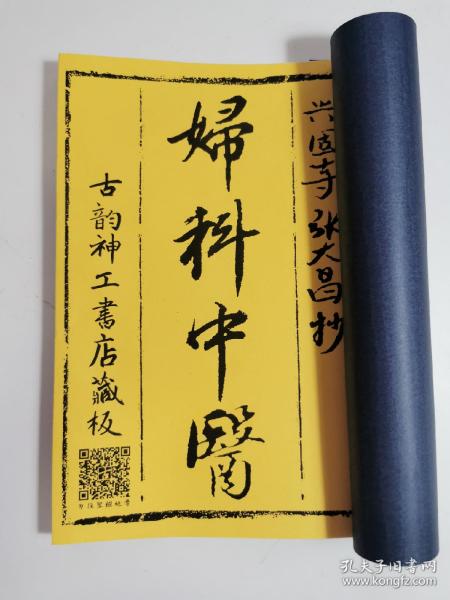 兴国寺张大昌抄
婦科中醫
古韵神工書店藏板
孔夫子旧书网
www.kongfz.com